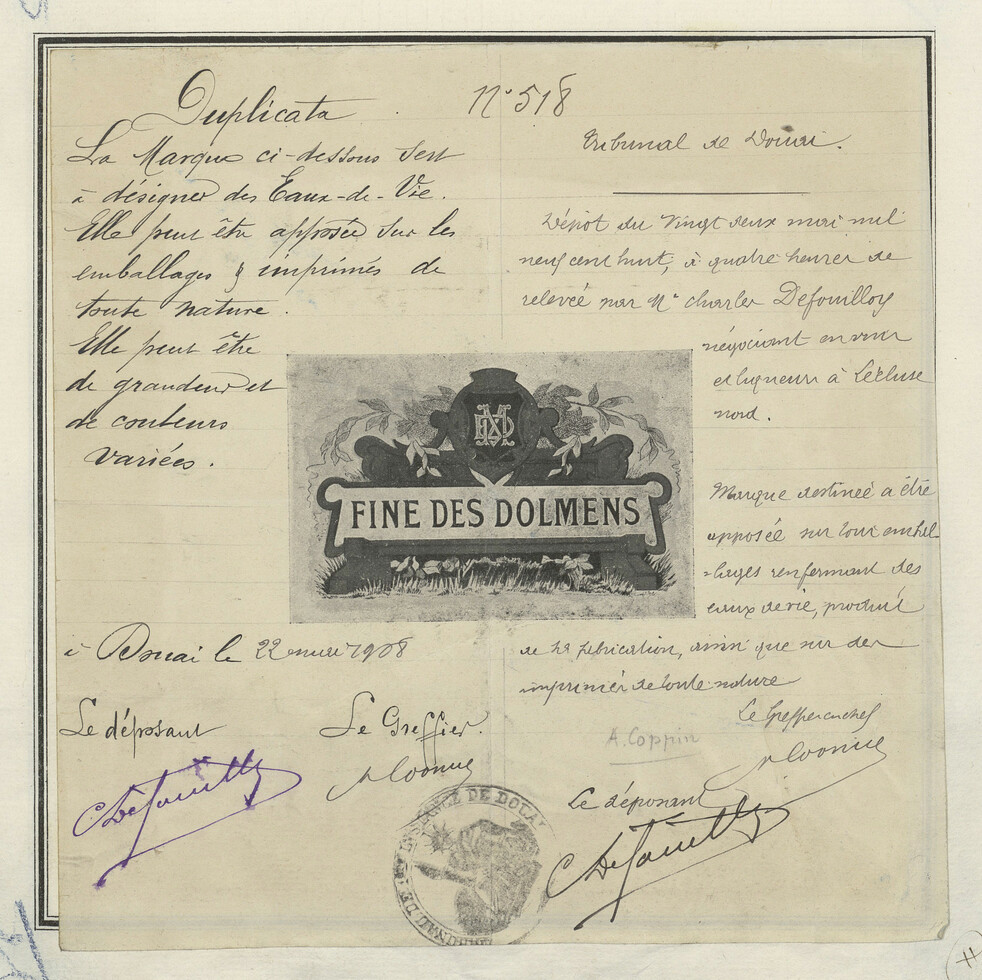 Duplicata
N° 518
La Marque ci-dessous sert
à désigner des Eaux-de-Vie.
Elle peut être apposée sur les
emballages & imprimés de
toute nature.
Elle peut être
de grandeur et
de couleurs
variées.
FINE DES DOLMENS
à Douai le 22 mai 1908
Le déposant
Le Greffier.
CDefouilloy
Tribunal de Douai.
Dépôt du vingt deux mai mil
neuf cent huit, à quatre heures de
relevée par Mr Charles Defouilloy
négociant en vins
et liqueurs à Lécluse
nord.
Marque destinée a être
apposée sur tous embal-
-lages renfermant des
eaux de vie, produit
de sa fabrication, ainsi que sur des
imprimés de toute nature
Le Greffier en chef
A. Coppin
Le déposant
CDefouilloy
INSTANCE DE DOUAI
TRIBUNAL DE